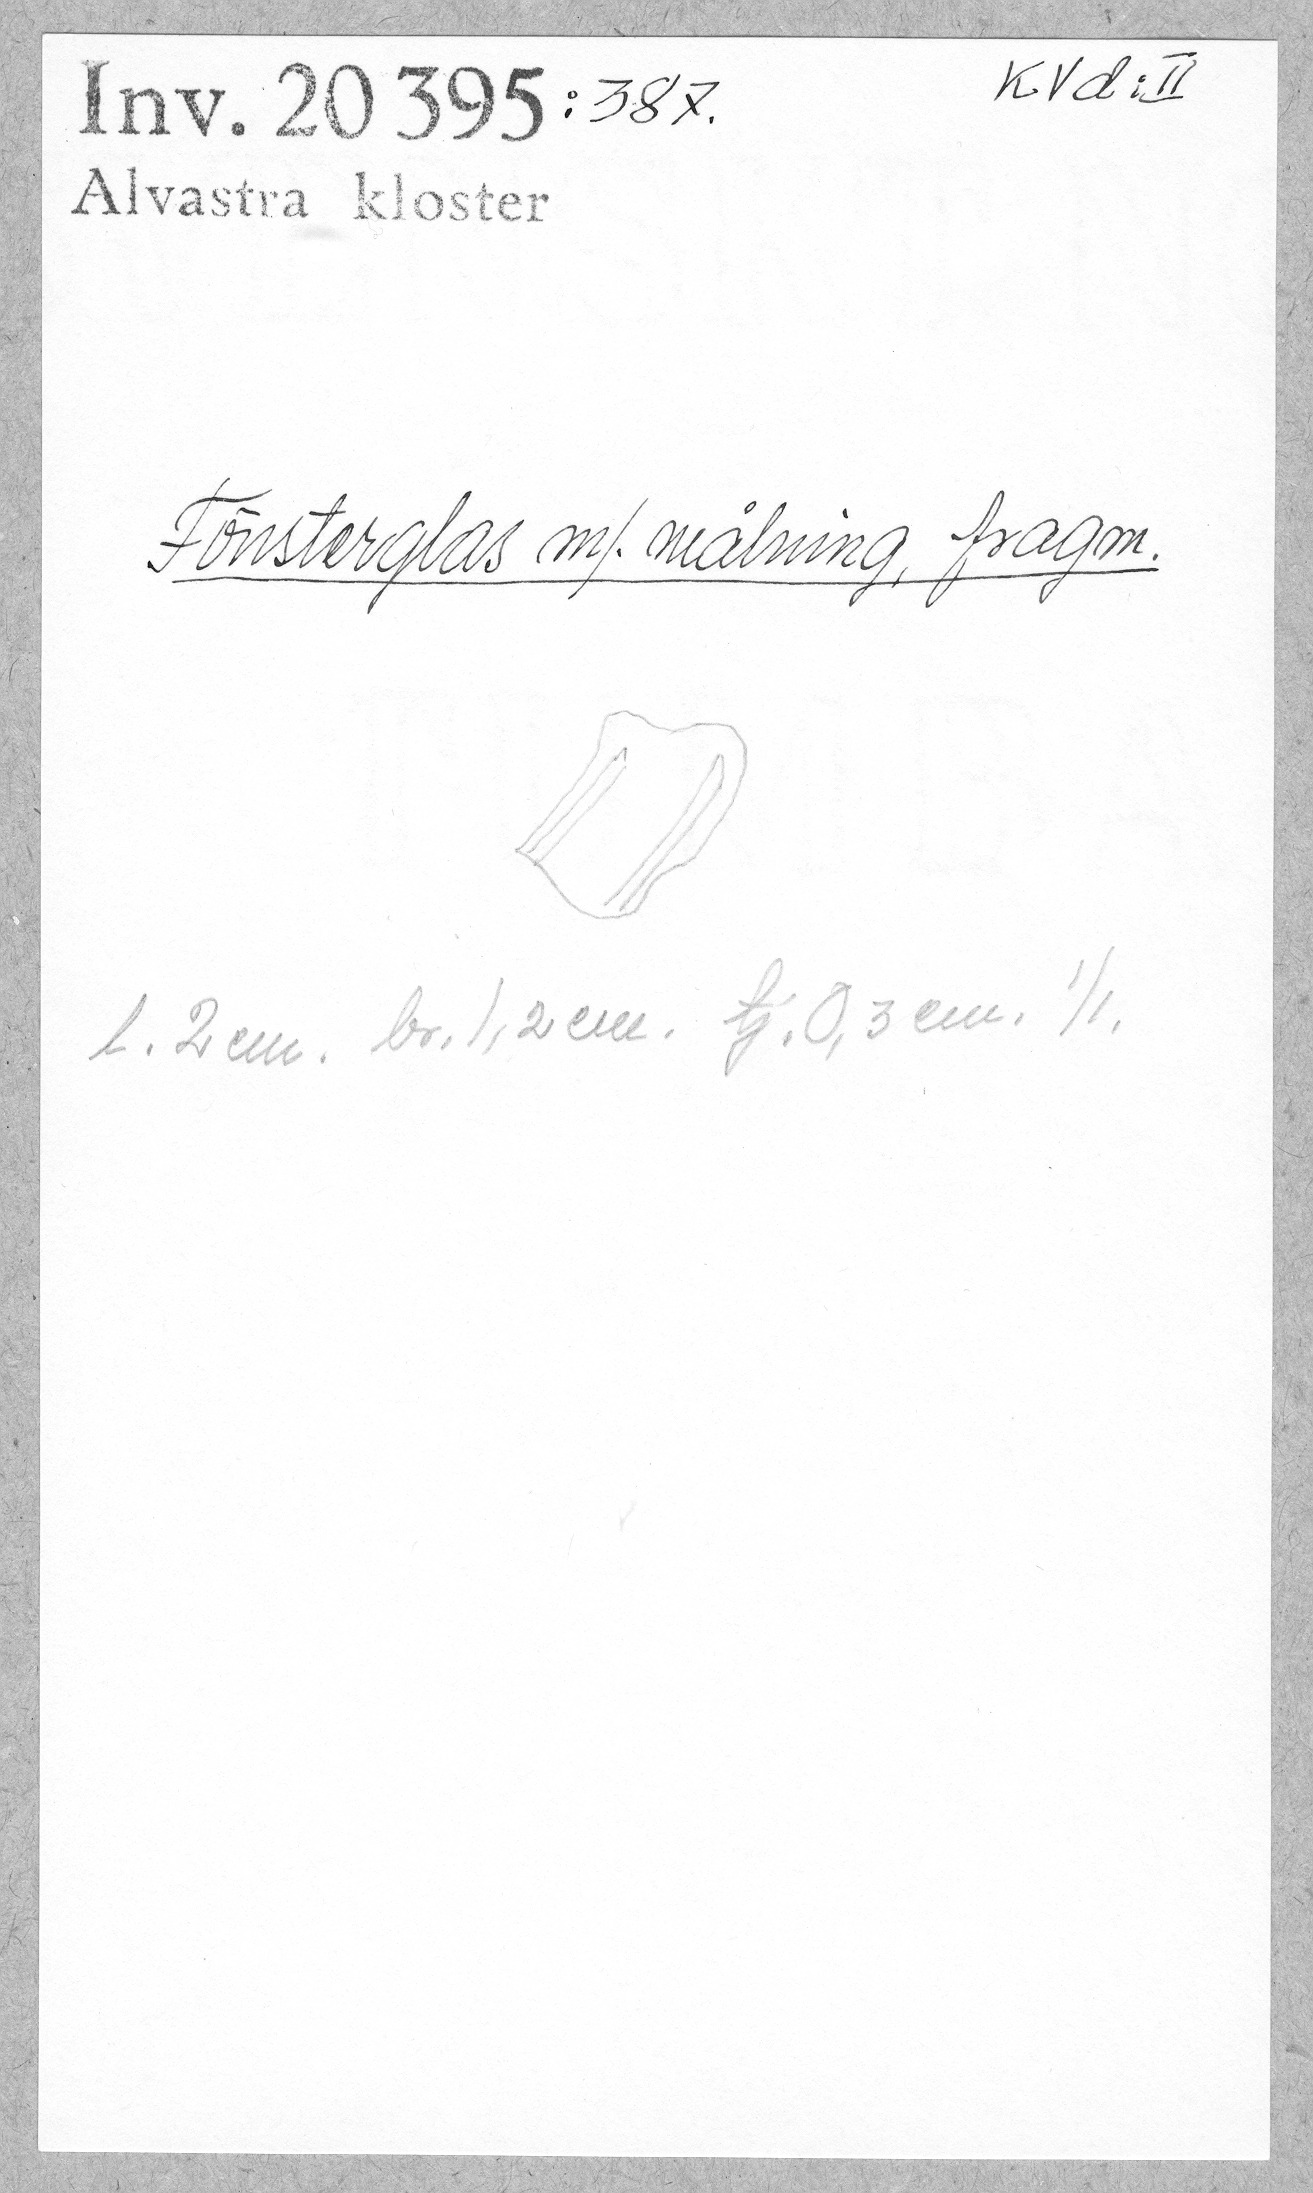 Inv. 20 395:387. KVd:II
Alvastra kloster
Fönsterglas m/. målning, fragm.
L. 2 cm. br. 1,2 cm. tj. 0,3 cm. 1/1.